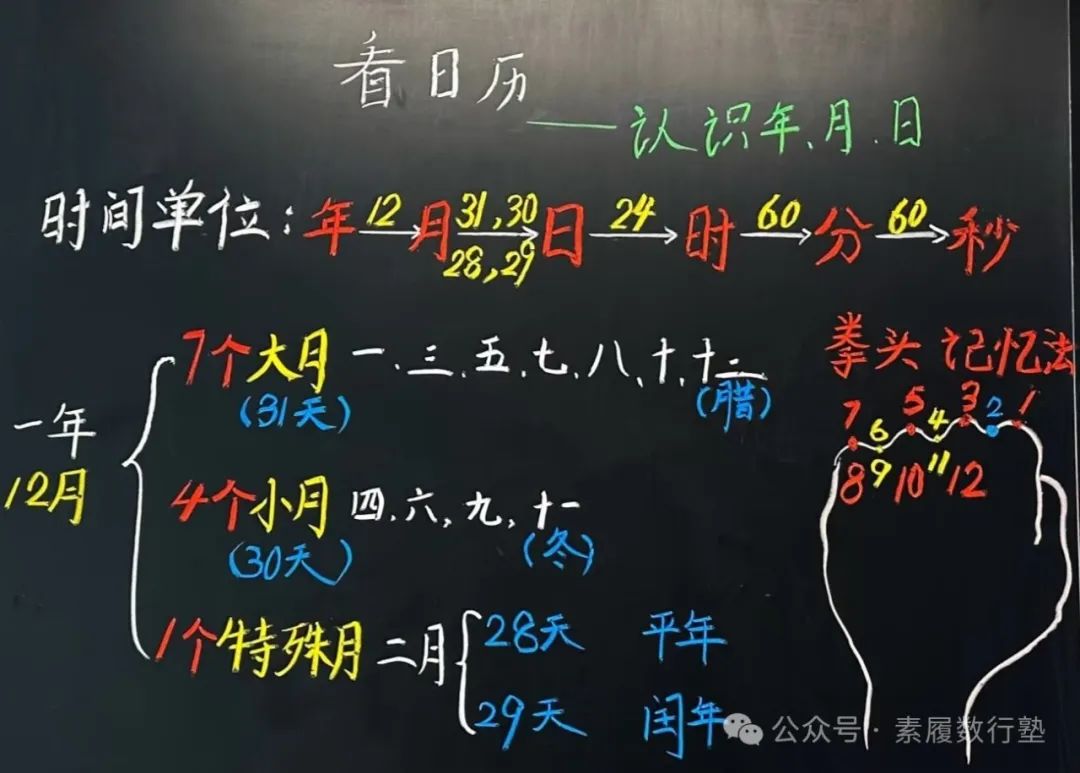 看日历
——认识年、月、日
时间单位：年 12 月 31,30 28,29 日 24 时 60 分 60 秒
一年
12月
7个大月 一、三、五、七、八、十、十二
(31天) (腊)
4个小月 四、六、九、十一
(30天) (冬)
1个特殊月 二月
28天 平年
29天 闰年
拳头记忆法
7 6 5 4 3 2 1
8 9 10 11 12
公众号·素履数行塾